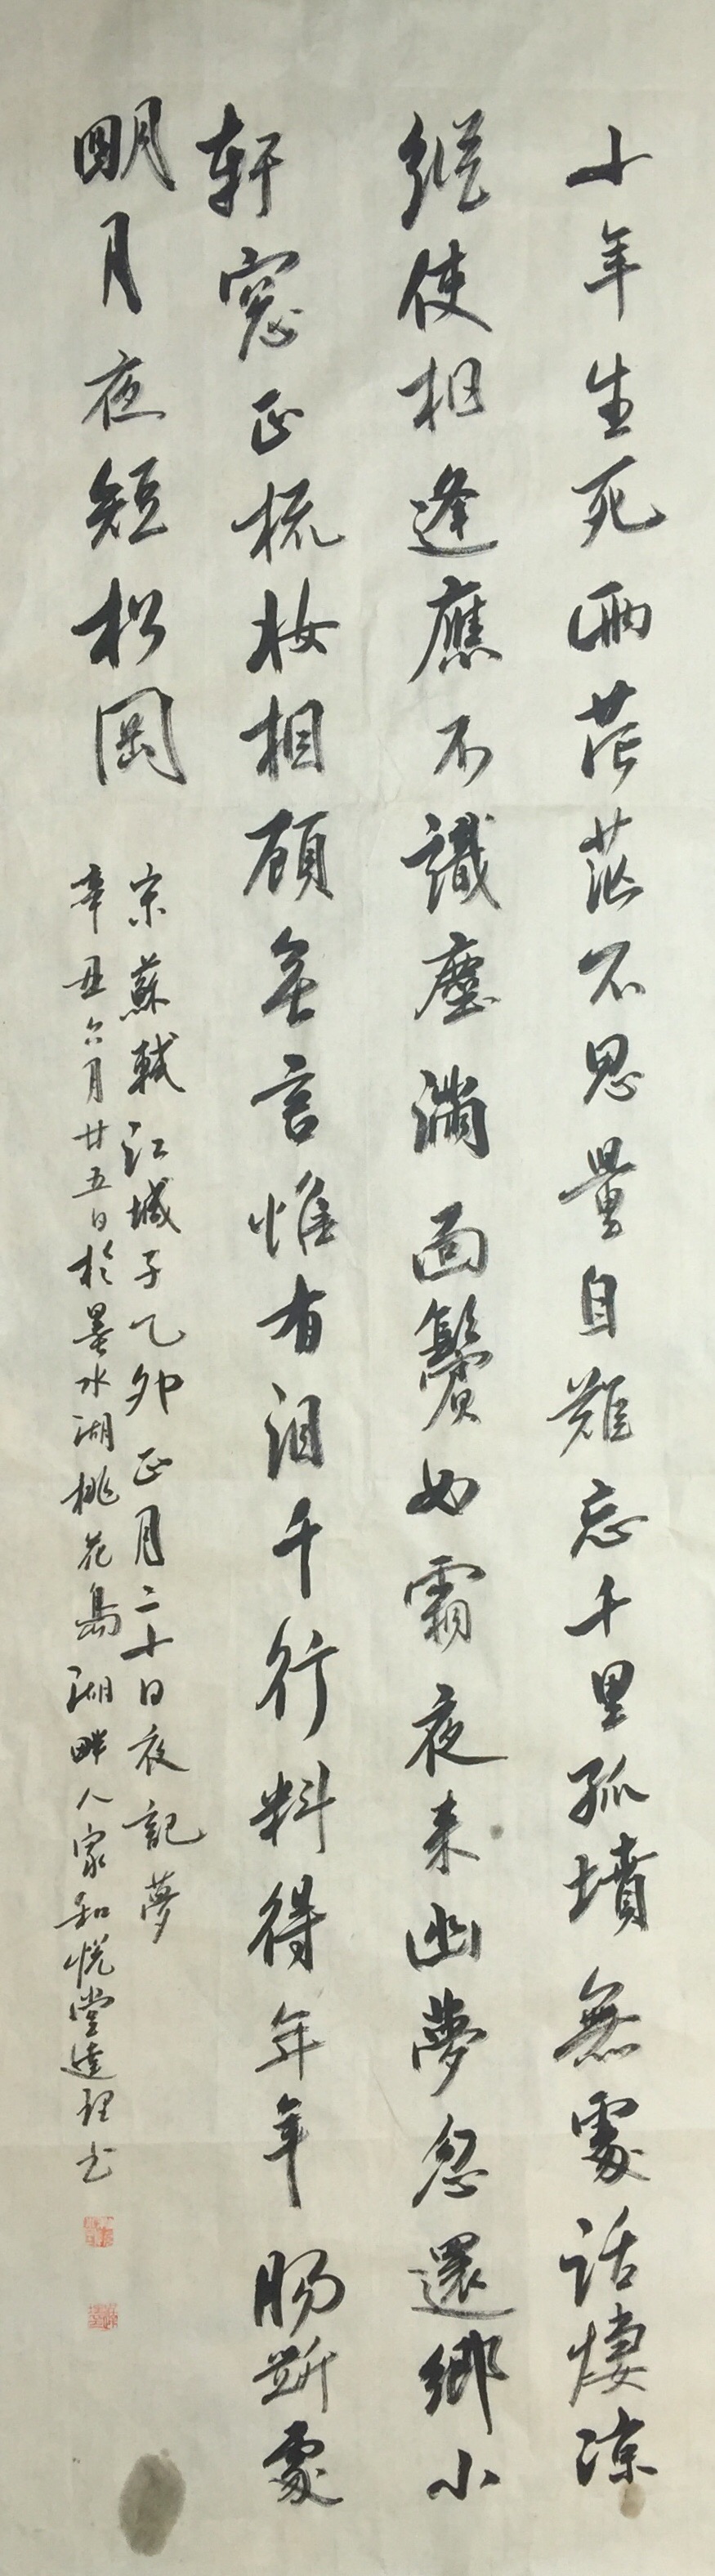 十年生死兩茫茫不思量自難忘千里孤墳無處話悽涼
縱使相逢應不識塵滿面鬢如霜夜來幽夢忽還鄉小
軒窓正梳妝相顧無言惟有泪千行料得年年肠斷處
明月夜短松岡
宋蘇軾江城子乙卯正月二十日夜記夢
辛丑六月廿五日於墨水湖桃花島湖畔人家和悦堂達理书